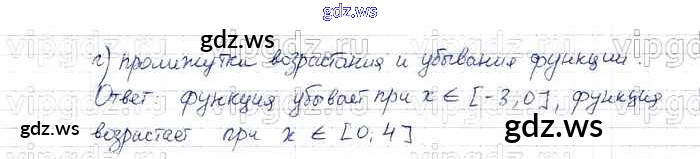 gdz.ws
г) промежутки возрастания и убывания функции.
Ответ: функция убывает при x ∈ [-3, 0], функция
возрастает при x ∈ [0, 4]
gdz.ws
gdz.ws
gdz.ws